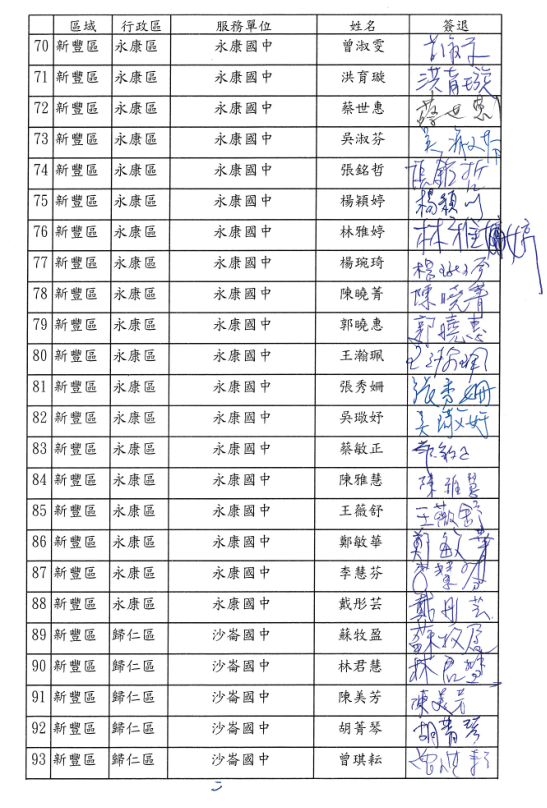 區域 行政區 服務單位 姓名 簽退
70 新豐區 永康區 永康國中 曾淑雯 曾淑雯
71 新豐區 永康區 永康國中 洪育璇 洪育璇
72 新豐區 永康區 永康國中 蔡世惠 蔡世惠
73 新豐區 永康區 永康國中 吳淑芬 吳淑芬
74 新豐區 永康區 永康國中 張銘哲 張銘哲
75 新豐區 永康區 永康國中 楊穎婷 楊穎
76 新豐區 永康區 永康國中 林雅婷 林雅婷
77 新豐區 永康區 永康國中 楊琬琦 楊琬琦
78 新豐區 永康區 永康國中 陳曉菁 陳曉菁
79 新豐區 永康區 永康國中 郭曉惠 郭曉惠
80 新豐區 永康區 永康國中 王瀚珮 王瀚珮
81 新豐區 永康區 永康國中 張秀姍 張秀姍
82 新豐區 永康區 永康國中 吳璥妤 吳璥妤
83 新豐區 永康區 永康國中 蔡敏正 蔡敏正
84 新豐區 永康區 永康國中 陳雅慧 陳雅慧
85 新豐區 永康區 永康國中 王薇舒 王薇舒
86 新豐區 永康區 永康國中 鄭敏華 鄭敏華
87 新豐區 永康區 永康國中 李慧芬 李慧芬
88 新豐區 永康區 永康國中 戴彤芸 戴彤芸
89 新豐區 歸仁區 沙崙國中 蘇牧盈 蘇牧盈
90 新豐區 歸仁區 沙崙國中 林君慧 林君慧
91 新豐區 歸仁區 沙崙國中 陳美芳 陳美芳
92 新豐區 歸仁區 沙崙國中 胡菁琴 胡菁琴
93 新豐區 歸仁區 沙崙國中 曾琪耘 曾琪耘